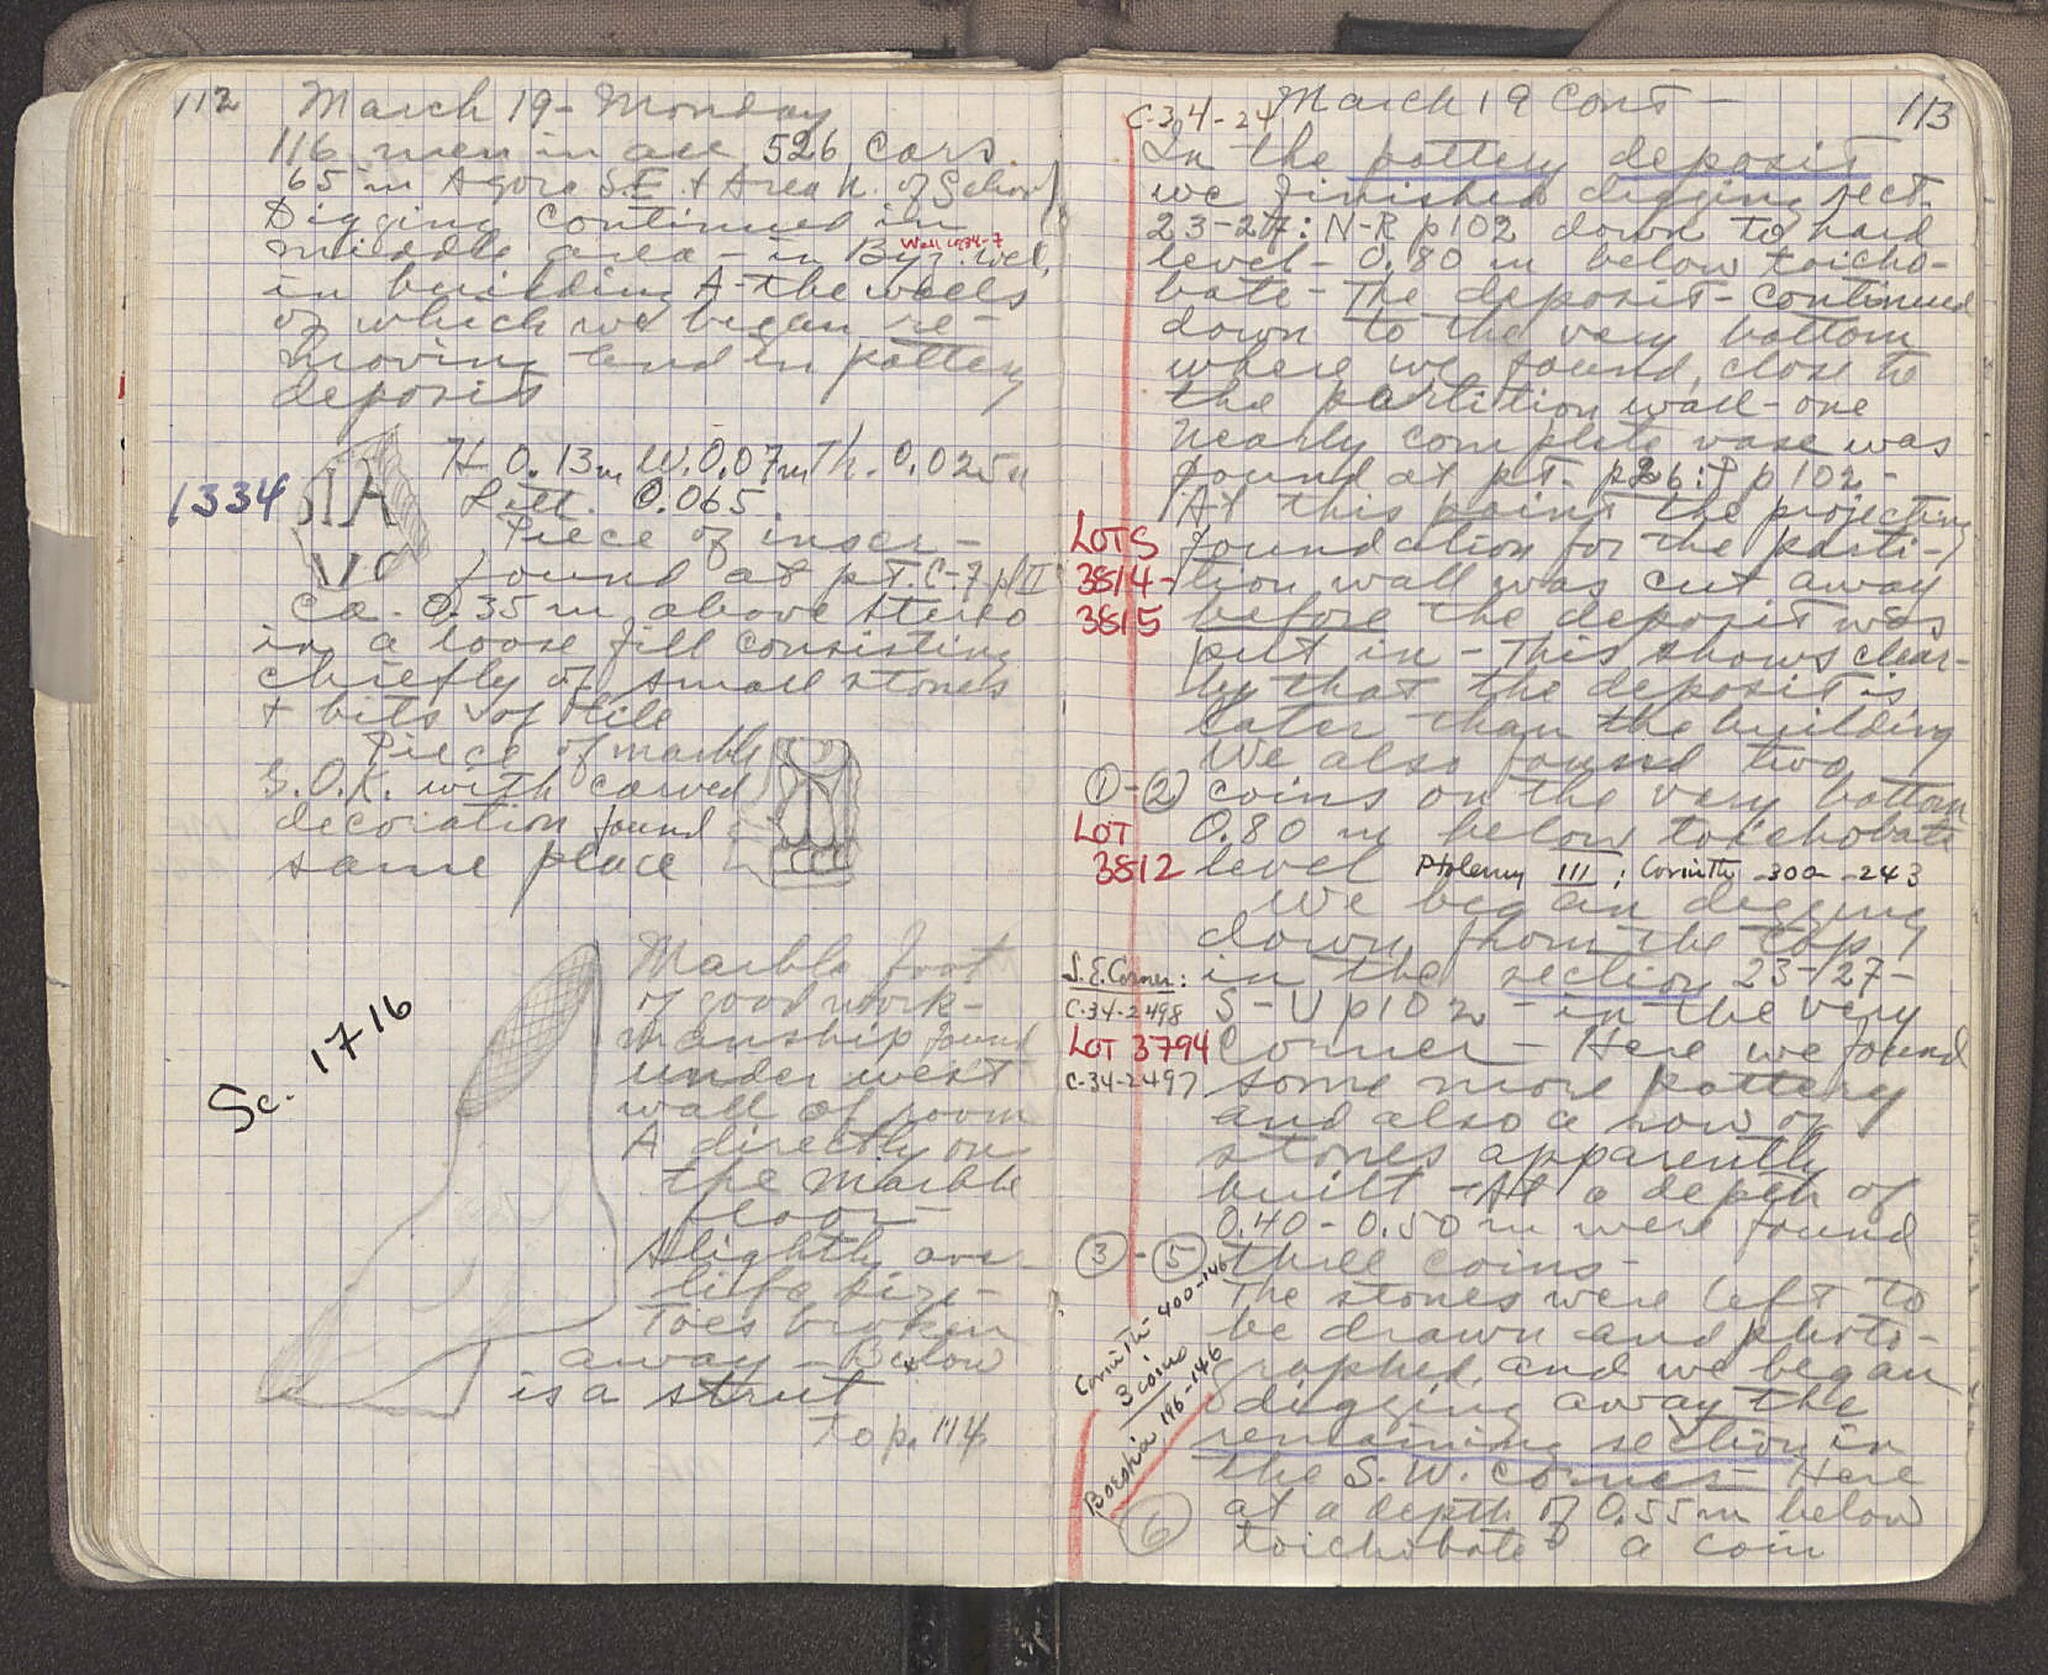 112 March 19 - Monday
116 men in all 526 cars.
65 in Agora S.E. + Area N. of School
Digging continued in
middle area - in Byz. well,
Well 1934-7
in building A - the walls
of which we began re-
moving and in pottery
deposit
1334
H 0.13m W. 0.07m Th. 0.025m
Lett. 0.065.
Piece of inscr-
found at pt. C-7 p II
ca. 0.35 m above stereo
in a loose fill consisting
chiefly of small stones
+ bits of tile
Piece of marble
S.O.K. with carved
decoration found
same place
Sc. 1716
Marble foot
of good work-
manship found
under west
wall of room
A directly on
the marble
floor -
Slightly over
life size -
Toes broken
away - Below
is a strut
to p. 114
March 19 Cont - 113
C-34-24
In the pottery deposit
we finished digging sect.
23-27: N-R p 102 down to hard
level - 0.80 m below toicho-
bate - The deposit - continued
down to the very bottom
where we found, close to
the partition wall - one
nearly complete vase was
found at pt. p 26: p 102 -
At this point the projecting
LOTS foundation for the parti-
3814- tion wall was cut away
3815 before the deposit was
put in - This shows clear-
ly that the deposit is
later than the building
We also found two
①-② coins on the very bottom
LOT 0.80 m below toichobate
3812 level Ptolemy III; Corinth -300 -243
We began digging
down from the top
S.E. Corner: in the section 23-27-
C-34-2498 S-U p 102 - in the very
LOT 3794 corner - Here we found
C-34-2497 some more pottery
and also a row of
stones apparently
built - At a depth of
0.40 - 0.50 m were found
③-⑤ three coins -
Corinth - 400-146
3 coins
Boeotia 196-146
The stones were left to
be drawn and photo-
graphed, and we began
digging away the
remaining section in
the S.W. corner - Here
at a depth of 0.55 m below
⑥ toichobate a coin